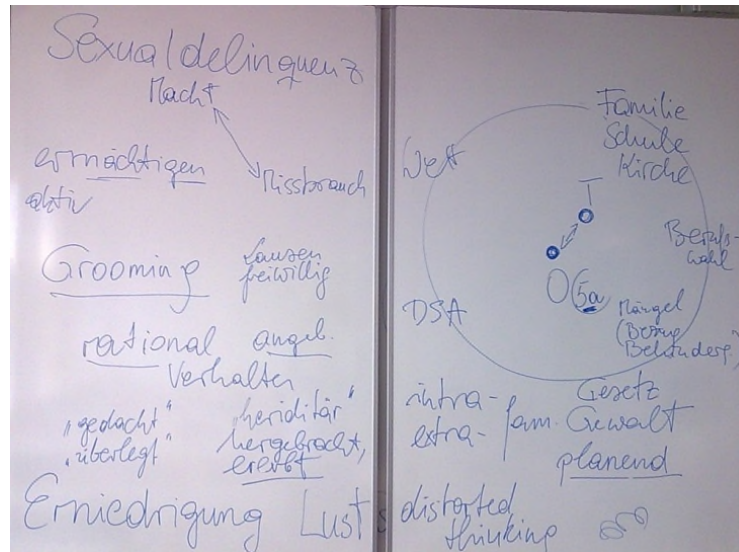 Sexualdelinquenz
Macht
ermächtigen
aktiv
Missbrauch
Grooming
Lausen
freiwillig
rational angeb.
Verhalten
"gedacht"
"überlegt"
"heriditär"
hergebracht,
ererbt
Erniedrigung Lust
Familie
Schule
Kirche
Nett
T
Berufs-
wahl
O 5a
DSA
Mängel
(Bezug
Behinderg.)
intra-
extra- fam.
Gesetz
Gewalt
planend
distorted
thinking